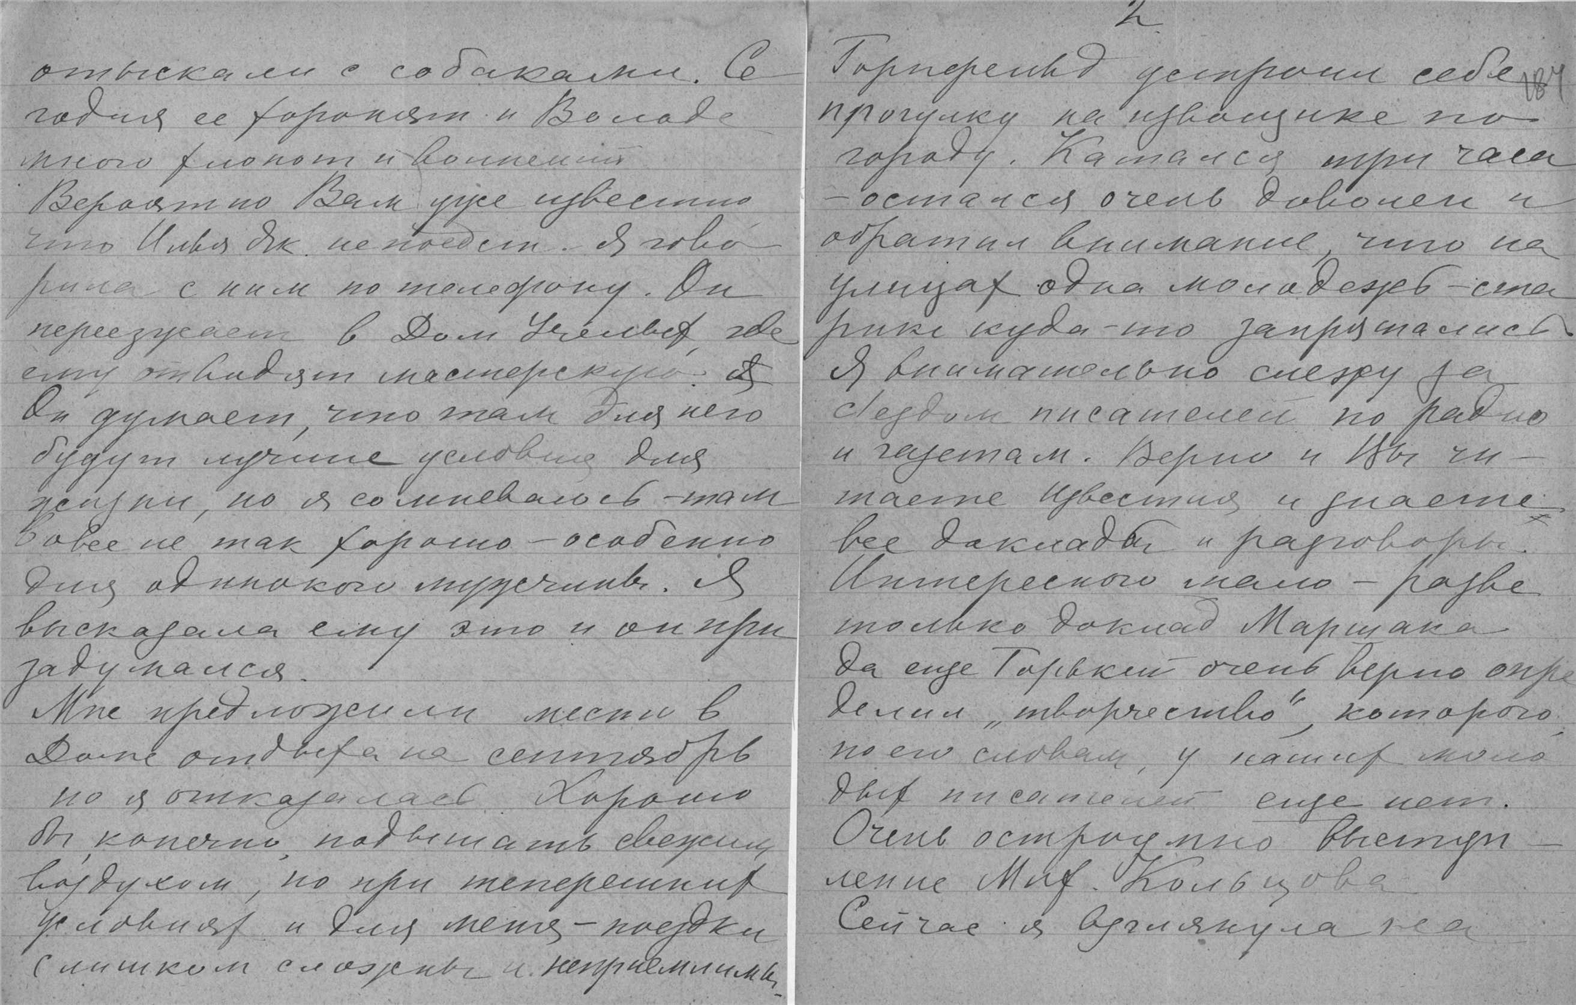 отыскали с собаками. Се
годня ее хоронят и Володе
много хлопот и волнений
Вероятно Вам уже известно
что Илья Як. не поедет. Я гово
рила с ним по телефону. Он
переезжает в Дом Ученых, где
ему отводят мастерскую.
Он думает, что там для него
будут лучше условия для
жизни, но я сомневаюсь – там
вовсе не так хорошо – особенно
для одинокого мужчины. Я
высказала ему это и он при
задумался.
Мне предложили место в
Доме отдыха на сентябрь
но я отказалась. Хорошо
бы, конечно, подышать свежим
воздухом, но при теперешних
условиях и для меня – поездки
слишком сложны и неприемлимы.
2
184
Горнфельд устроил себе
прогулку на извощике по
городу. Катался три часа
– остался очень доволен и
обратил внимание, что на
улицах одна молодежь – ста
рики куда-то запрятались
Я внимательно слежу за
съездом писателей по радио
и газетам. Верно и Вы чи–
таете Известия и знаете
все доклады и разговоры.
Интересного мало – разве
только доклад Маршака
да еще Горький очень верно опре
делил „творчество“, которого,
по его словам, у наших моло
дых писателей еще нет.
Очень остроумно выступ–
ление Мих. Кольцова
Сейчас я взглянула на